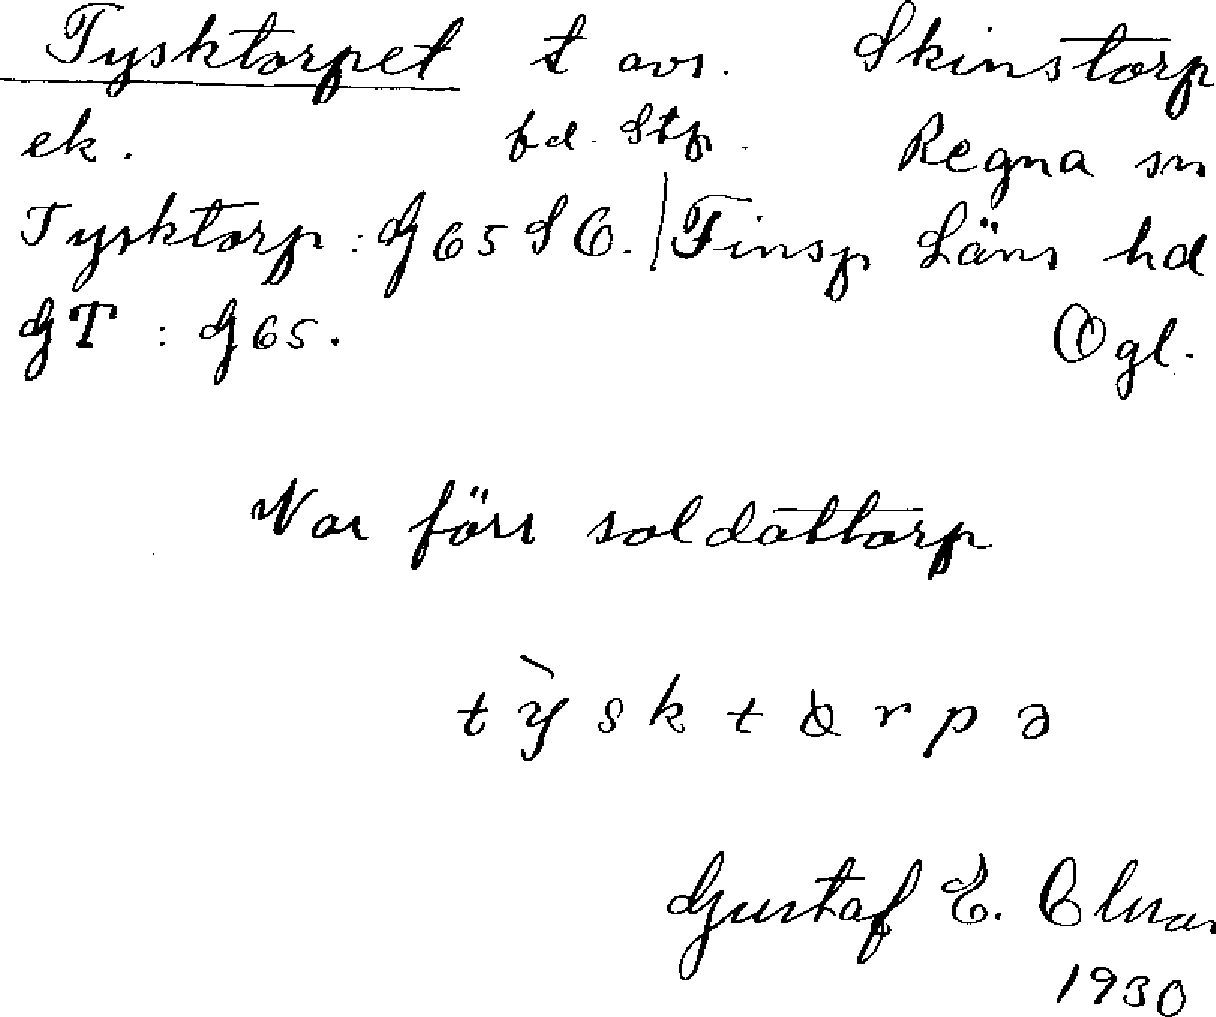 Tysktorpet t avs. Skinstorp
ek. fd. Stp. Regna sn
Tysktorp: G 65 SO. | Finsp Läns hd
GT: G 65. Ögl.
Var förr soldattorp
Gustaf E.
1930